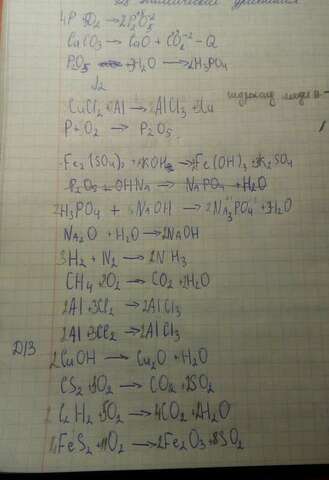 4P 5O₂ → 2P₂⁺⁵O₅⁻²
CaCO₃ → CaO + CO₂ - Q
P₂O₅ 3H₂O → 2H₃PO₄
CuCl₂ + Al → 2AlCl₃ + Cu
P + O₂ → P₂O₅
Fe₂(SO₄)₃ + KOH → 2Fe(OH)₃ + K₂SO₄
P₂O₅ + OHNa → NaPO₄ + H₂O
2H₃PO₄ + NaOH → 2Na₃PO₄ + 3H₂O
Na₂O + H₂O → 2NaOH
3H₂ + N₂ → 2NH₃
CH₄ + 2O₂ → CO₂ + 2H₂O
2Al + 3Cl₂ → 2AlCl₃
2Al + 3Cl₂ → 2AlCl₃
Д/З
2CuOH → Cu₂O + H₂O
CS₂ + 3O₂ → CO₂ + 2SO₂
2C₂H₂ + 5O₂ → 4CO₂ + 2H₂O
4FeS₂ + 11O₂ → 2Fe₂O₃ + 8SO₂